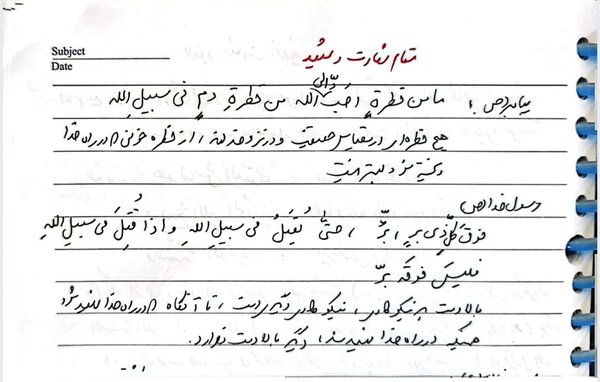 Subject
Date
مقام شهادت و شهید
پیامبر (ص):
ما من قطرةٍ احبُّ الی الله من قطرةِ دمٍ فی سبیلِ اللهِ
هیچ قطره‌ای در مقیاس حقیقت و در نزد خدا، از قطره خونی که در راه خدا
ریخته شود بهتر نیست
رسول خدا (ص)
فوقَ کُلِّ ذی بِرٍ، بِرٌّ، حتّیٰ یُقتَلُ فی سبیلِ اللهِ و اذا قُتِلَ فی سبیلِ اللهِ
فلیسَ فوقَهُ بِرٌّ
بالا دست هر نیکوکاری، نیکوکاری دیگری است، تا آنگاه که در راه خدا شهید شود
همینکه در راه خدا شهید شد، دیگر بالا دست ندارد.